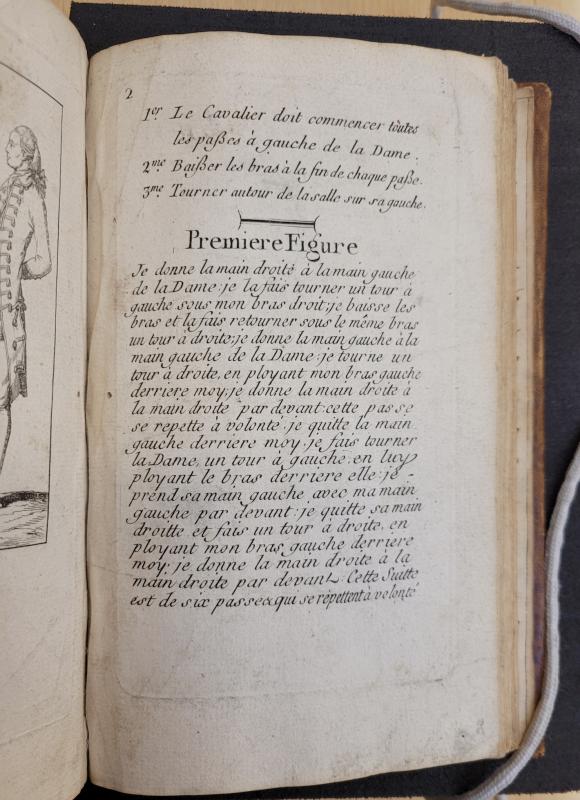 2
1er Le Cavalier doit commencer toutes
les paßes à gauche de la Dame.
2me Baißer les bras à la fin de chaque paße.
3me Tourner autour de la salle sur sa gauche.
Premiere Figure
Je donne la main droite à la main gauche
de la Dame: je la fais tourner un tour à
gauche sous mon bras droit; je baisse les
bras et la fais retourner sous le même bras
un tour à droite; je donne la main gauche à la
main gauche de la Dame: je tourne un
tour à droite, en ployant mon bras gauche
derriere moy; je donne la main droite à
la main droite par devant: cette passe
se repette à volonté: je quitte la main
gauche derriere moy: je fais tourner
la Dame, un tour à gauche: en luy
ployant le bras derriere elle: je -
prend sa main gauche avec ma main
gauche par devant: je quitte sa main
droitte et fais un tour à droite, en
ployant mon bras gauche derriere
moy: je donne la main droite à la
main droite par devant: Cette Suitte
est de six passe& qui se répettent à volonté